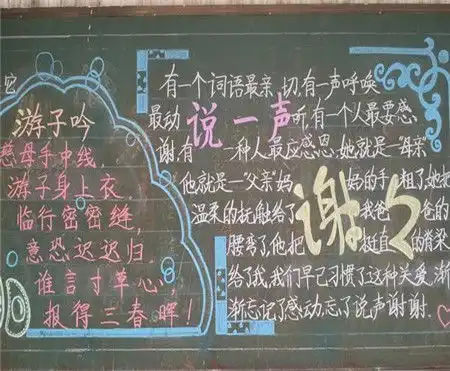 游子吟
慈母手中线,
游子身上衣.
临行密密缝,
意恐迟迟归.
谁言寸草心
报得三春晖!
有一个词语最亲切,有一声呼唤
最动 说一声 听,有一个人最要感
谢,有 一种人最应感恩,她就是“母亲
他就是“父亲”妈 妈的手粗了,她把
温柔的抚触给了 我,爸 爸的
腰弯了,他把 挺直 的脊梁
谢々
给了我,我们早已习惯了这种关爱,渐
渐忘记了感动,忘了说声谢谢.